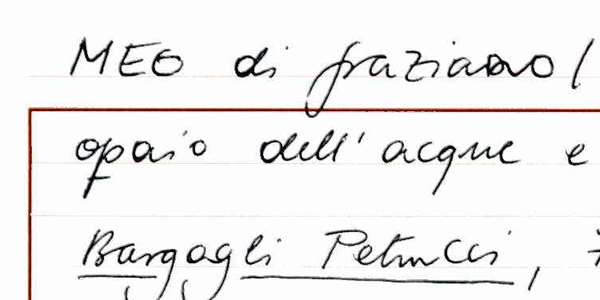 MEO di graziano/
opaio dell'acque e
Bargagli Petrucci,